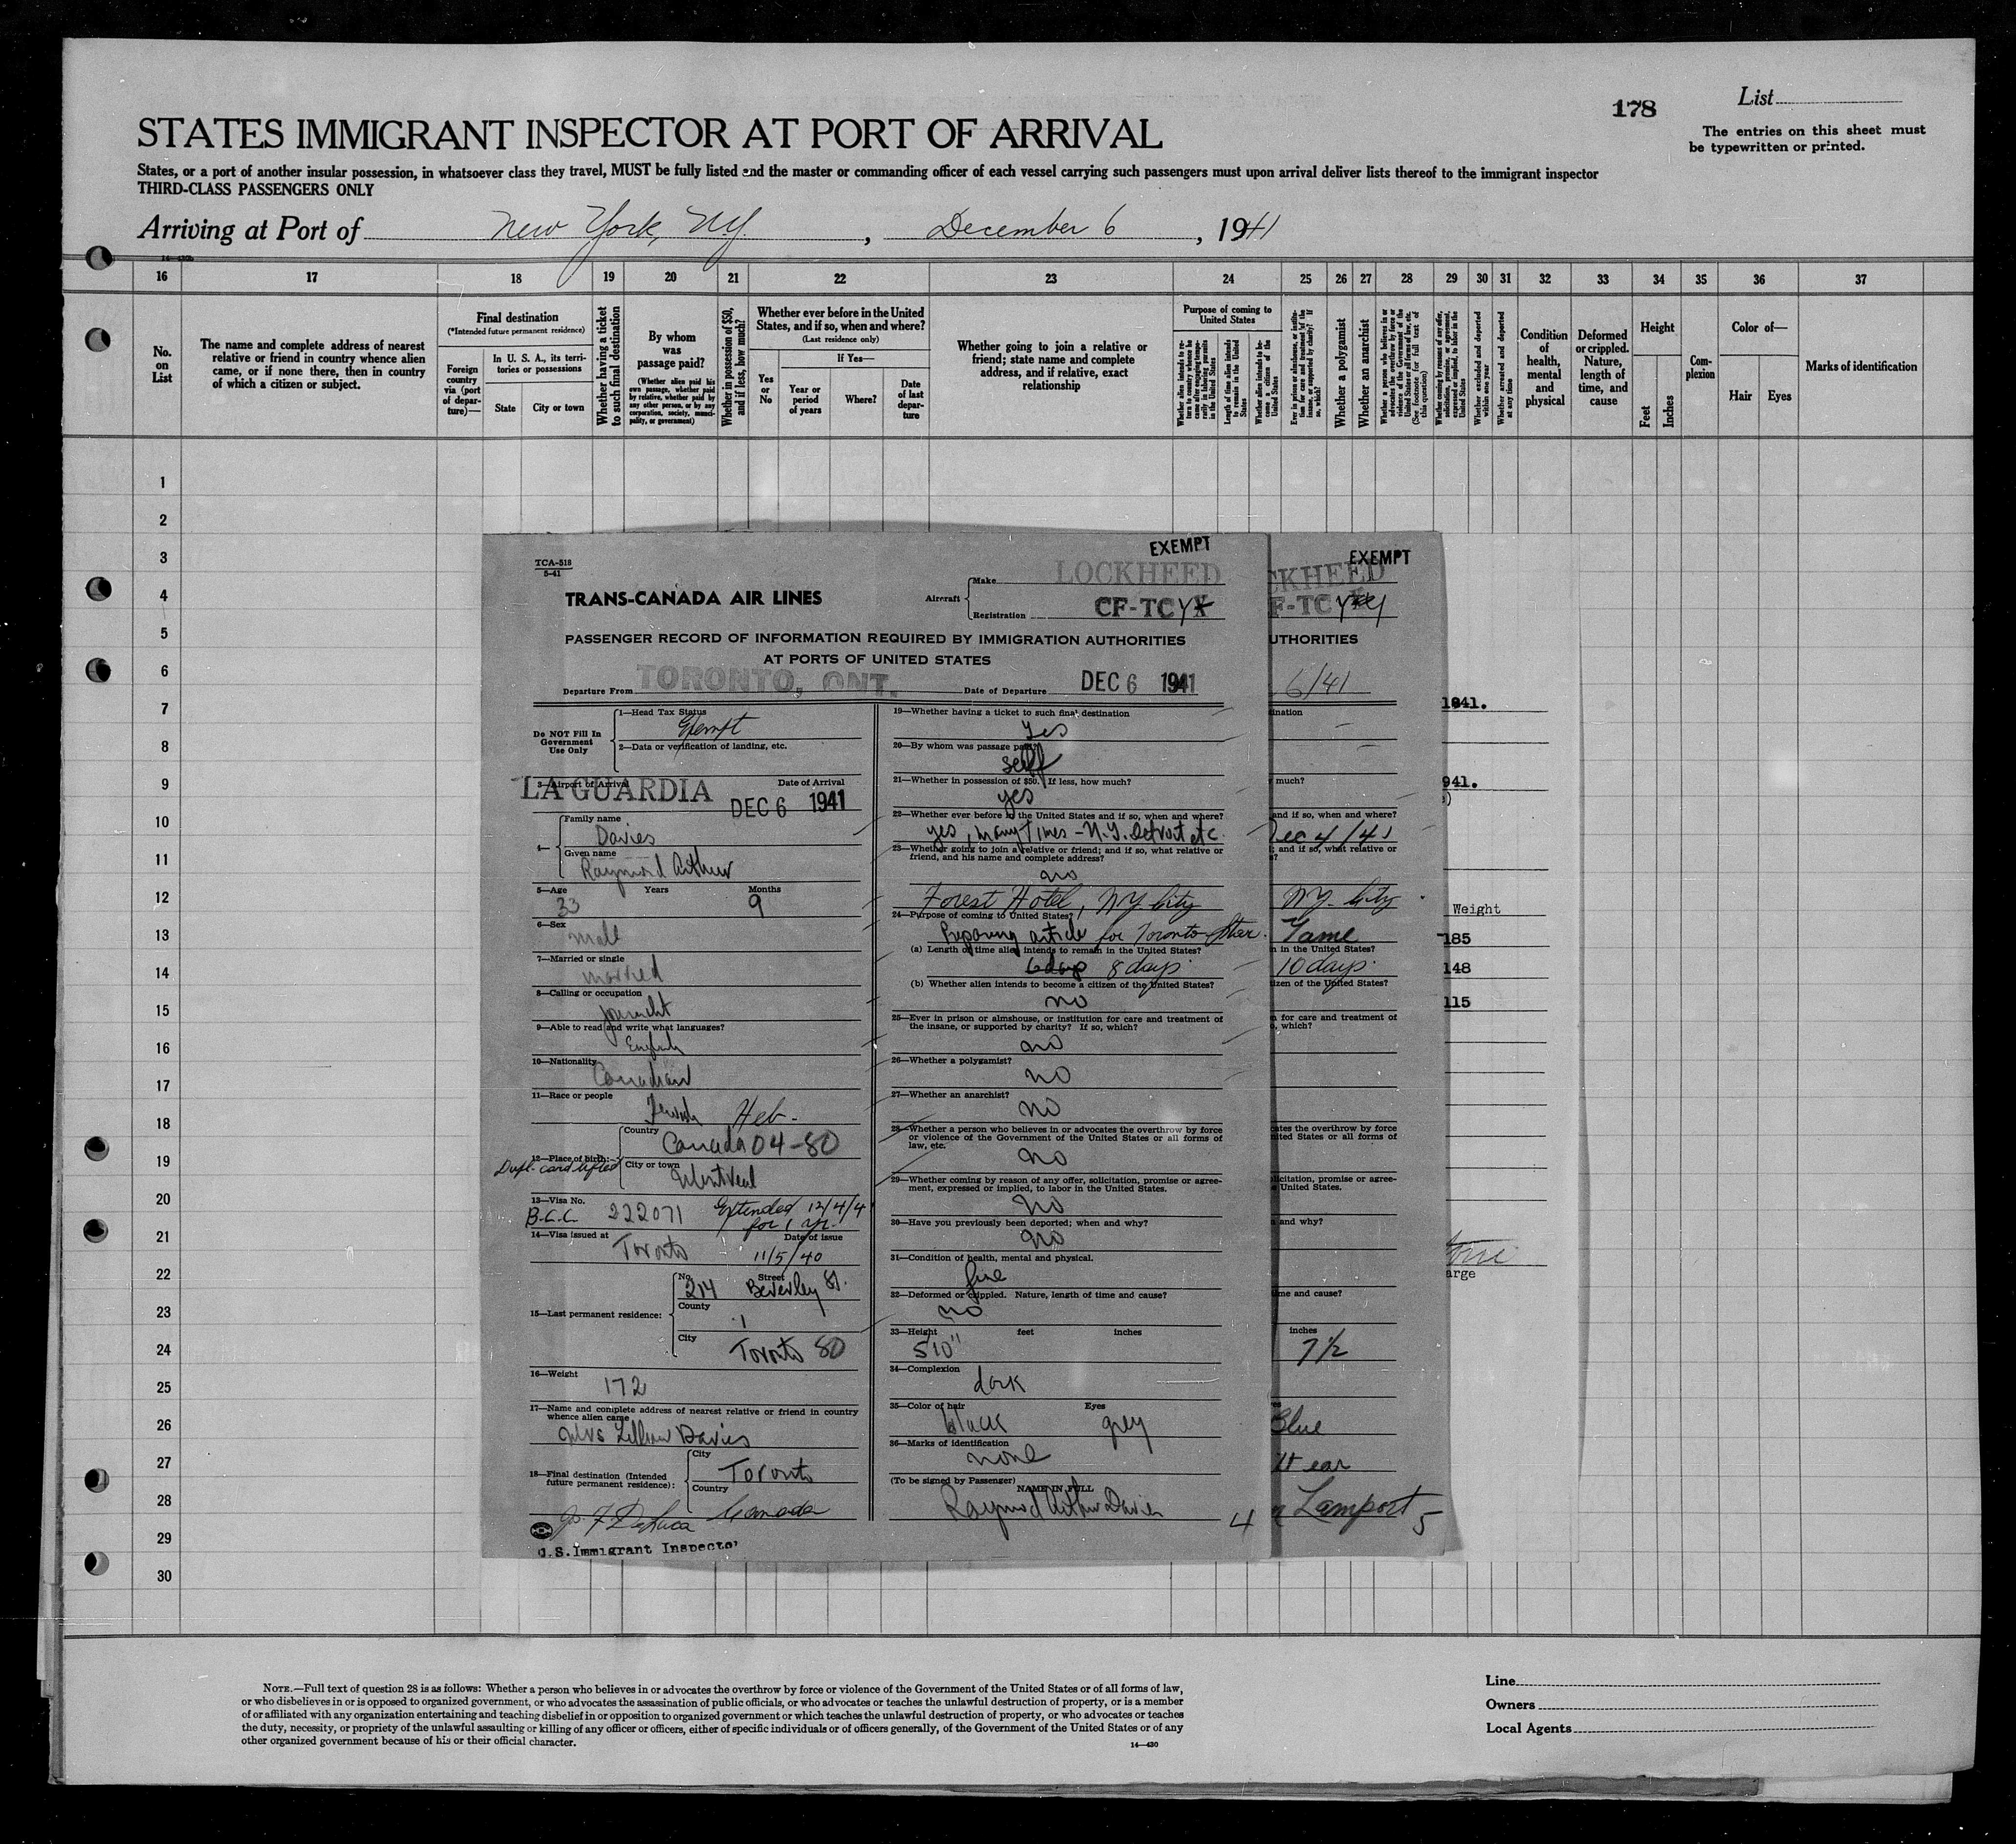 178
List
STATES IMMIGRANT INSPECTOR AT PORT OF ARRIVAL
The entries on this sheet must
be typewritten or printed.
States, or a port of another insular possession, in whatsoever class they travel, MUST be fully listed and the master or commanding officer of each vessel carrying such passengers must upon arrival deliver lists thereof to the immigrant inspector
THIRD-CLASS PASSENGERS ONLY
Arriving at Port of New York, N.Y. , December 6 , 1941
16 17 18 19 20 21 22 23 24 25 26 27 28 29 30 31 32 33 34 35 36 37
No. on List
The name and complete address of nearest relative or friend in country whence alien came, or if none there, then in country of which a citizen or subject.
Final destination
(*Intended future permanent residence)
Foreign country via (port of departure)—
In U. S. A., its territories or possessions
State
City or town
Whether having a ticket to such final destination
By whom was passage paid?
(Whether alien paid his own passage, whether paid by relative, whether paid by any other person, or by any corporation, society, municipality, or government)
Whether in possession of $50, and if less, how much?
Whether ever before in the United States, and if so, when and where?
(Last residence only)
If Yes—
Yes or No
Year or period of years
Where?
Date of last departure
Whether going to join a relative or friend; state name and complete address, and if relative, exact relationship
Purpose of coming to United States
Length of time alien intends to remain in the United States
Whether alien intends to become a citizen of the United States
Whether a polygamist
Whether an anarchist
Whether excluded and deported within one year
Whether arrested and deported at any time
Condition of health, mental and physical
Deformed or crippled. Nature, length of time, and cause
Height
Feet
Inches
Complexion
Color of—
Hair
Eyes
Marks of identification
1
2
3
4
5
6
7
8
9
10
11
12
13
14
15
16
17
18
19
20
21
22
23
24
25
26
27
28
29
30
TCA-518
5-41
EXEMPT
TRANS-CANADA AIR LINES
Aircraft
Make LOCKHEED
Registration CF-TCY
PASSENGER RECORD OF INFORMATION REQUIRED BY IMMIGRATION AUTHORITIES
AT PORTS OF UNITED STATES
Departure From TORONTO, ONT. Date of Departure DEC 6 1941
Do NOT Fill In
Government
Use Only
1—Head Tax Status
Exempt
2—Data or verification of landing, etc.
3—Airport of Arrival Date of Arrival
LA GUARDIA DEC 6 1941
4—
Family name
Davies
Given name
Raymond Arthur
5—Age Years Months
33 9
6—Sex
male
7—Married or single
married
8—Calling or occupation
journalist
9—Able to read and write what languages?
English
10—Nationality
Canadian
11—Race or people
Jewish Heb-
12—Place of birth:
Country
Canada 04-80
Dupl. card lifted
City or town
Montreal
13—Visa No.
B.C.C. 222071 Extended 12/4/4
for 1 yr.
14—Visa issued at Date of issue
Toronto 11/5/40
15—Last permanent residence:
No. Street
214 Beverley St.
County
City
Toronto 80
16—Weight
172
17—Name and complete address of nearest relative or friend in country
whence alien came
Mrs Lillian Davies
18—Final destination (Intended
future permanent residence):
City
Toronto
Country
Canada
U.S. Immigrant Inspector
19—Whether having a ticket to such final destination
Yes
20—By whom was passage paid?
self
21—Whether in possession of $50. If less, how much?
yes
22—Whether ever before in the United States and if so, when and where?
yes, many times - N.Y. Detroit etc.
23—Whether going to join a relative or friend; and if so, what relative or
friend, and his name and complete address?
no
Forest Hotel, NY City
24—Purpose of coming to United States?
Preparing article for Toronto Star.
(a) Length of time alien intends to remain in the United States?
6 days 8 days
(b) Whether alien intends to become a citizen of the United States?
no
25—Ever in prison or almshouse, or institution for care and treatment of
the insane, or supported by charity? If so, which?
no
26—Whether a polygamist?
no
27—Whether an anarchist?
no
28—Whether a person who believes in or advocates the overthrow by force
or violence of the Government of the United States or all forms of
law, etc.
no
29—Whether coming by reason of any offer, solicitation, promise or agree-
ment, expressed or implied, to labor in the United States.
no
30—Have you previously been deported; when and why?
no
31—Condition of health, mental and physical.
fine
32—Deformed or crippled. Nature, length of time and cause?
no
33—Height feet inches
5 10"
34—Complexion
dark
35—Color of hair Eyes
black grey
36—Marks of identification
none
(To be signed by Passenger)
NAME IN FULL
Raymond Arthur Davies
4
EXEMPT
CKHEED
F-TC
UTHORITIES
6/41
ination
much?
and if so, when and where?
Dec 4/41
; and if so, what relative or
NY. City
Same
n in the United States?
10 days.
izen of the United States?
n for care and treatment of
, which?
cates the overthrow by force
nited States or all forms of
licitation, promise or agree-
United States.
and why?
me and cause?
inches
7 1/2
Blue
ear
Lamport
5
1941.
941.
Weight
185
148
115
arge
NOTE.—Full text of question 28 is as follows: Whether a person who believes in or advocates the overthrow by force or violence of the Government of the United States or of all forms of law,
or who disbelieves in or is opposed to organized government, or who advocates the assassination of public officials, or who advocates or teaches the unlawful destruction of property, or is a member
of or affiliated with any organization entertaining and teaching disbelief in or opposition to organized government or which teaches the unlawful destruction of property, or who advocates or teaches
the duty, necessity, or propriety of the unlawful assaulting or killing of any officer or officers, either of specific individuals or of officers generally, of the Government of the United States or of any
other organized government because of his or their official character.
14—430
Line
Owners
Local Agents